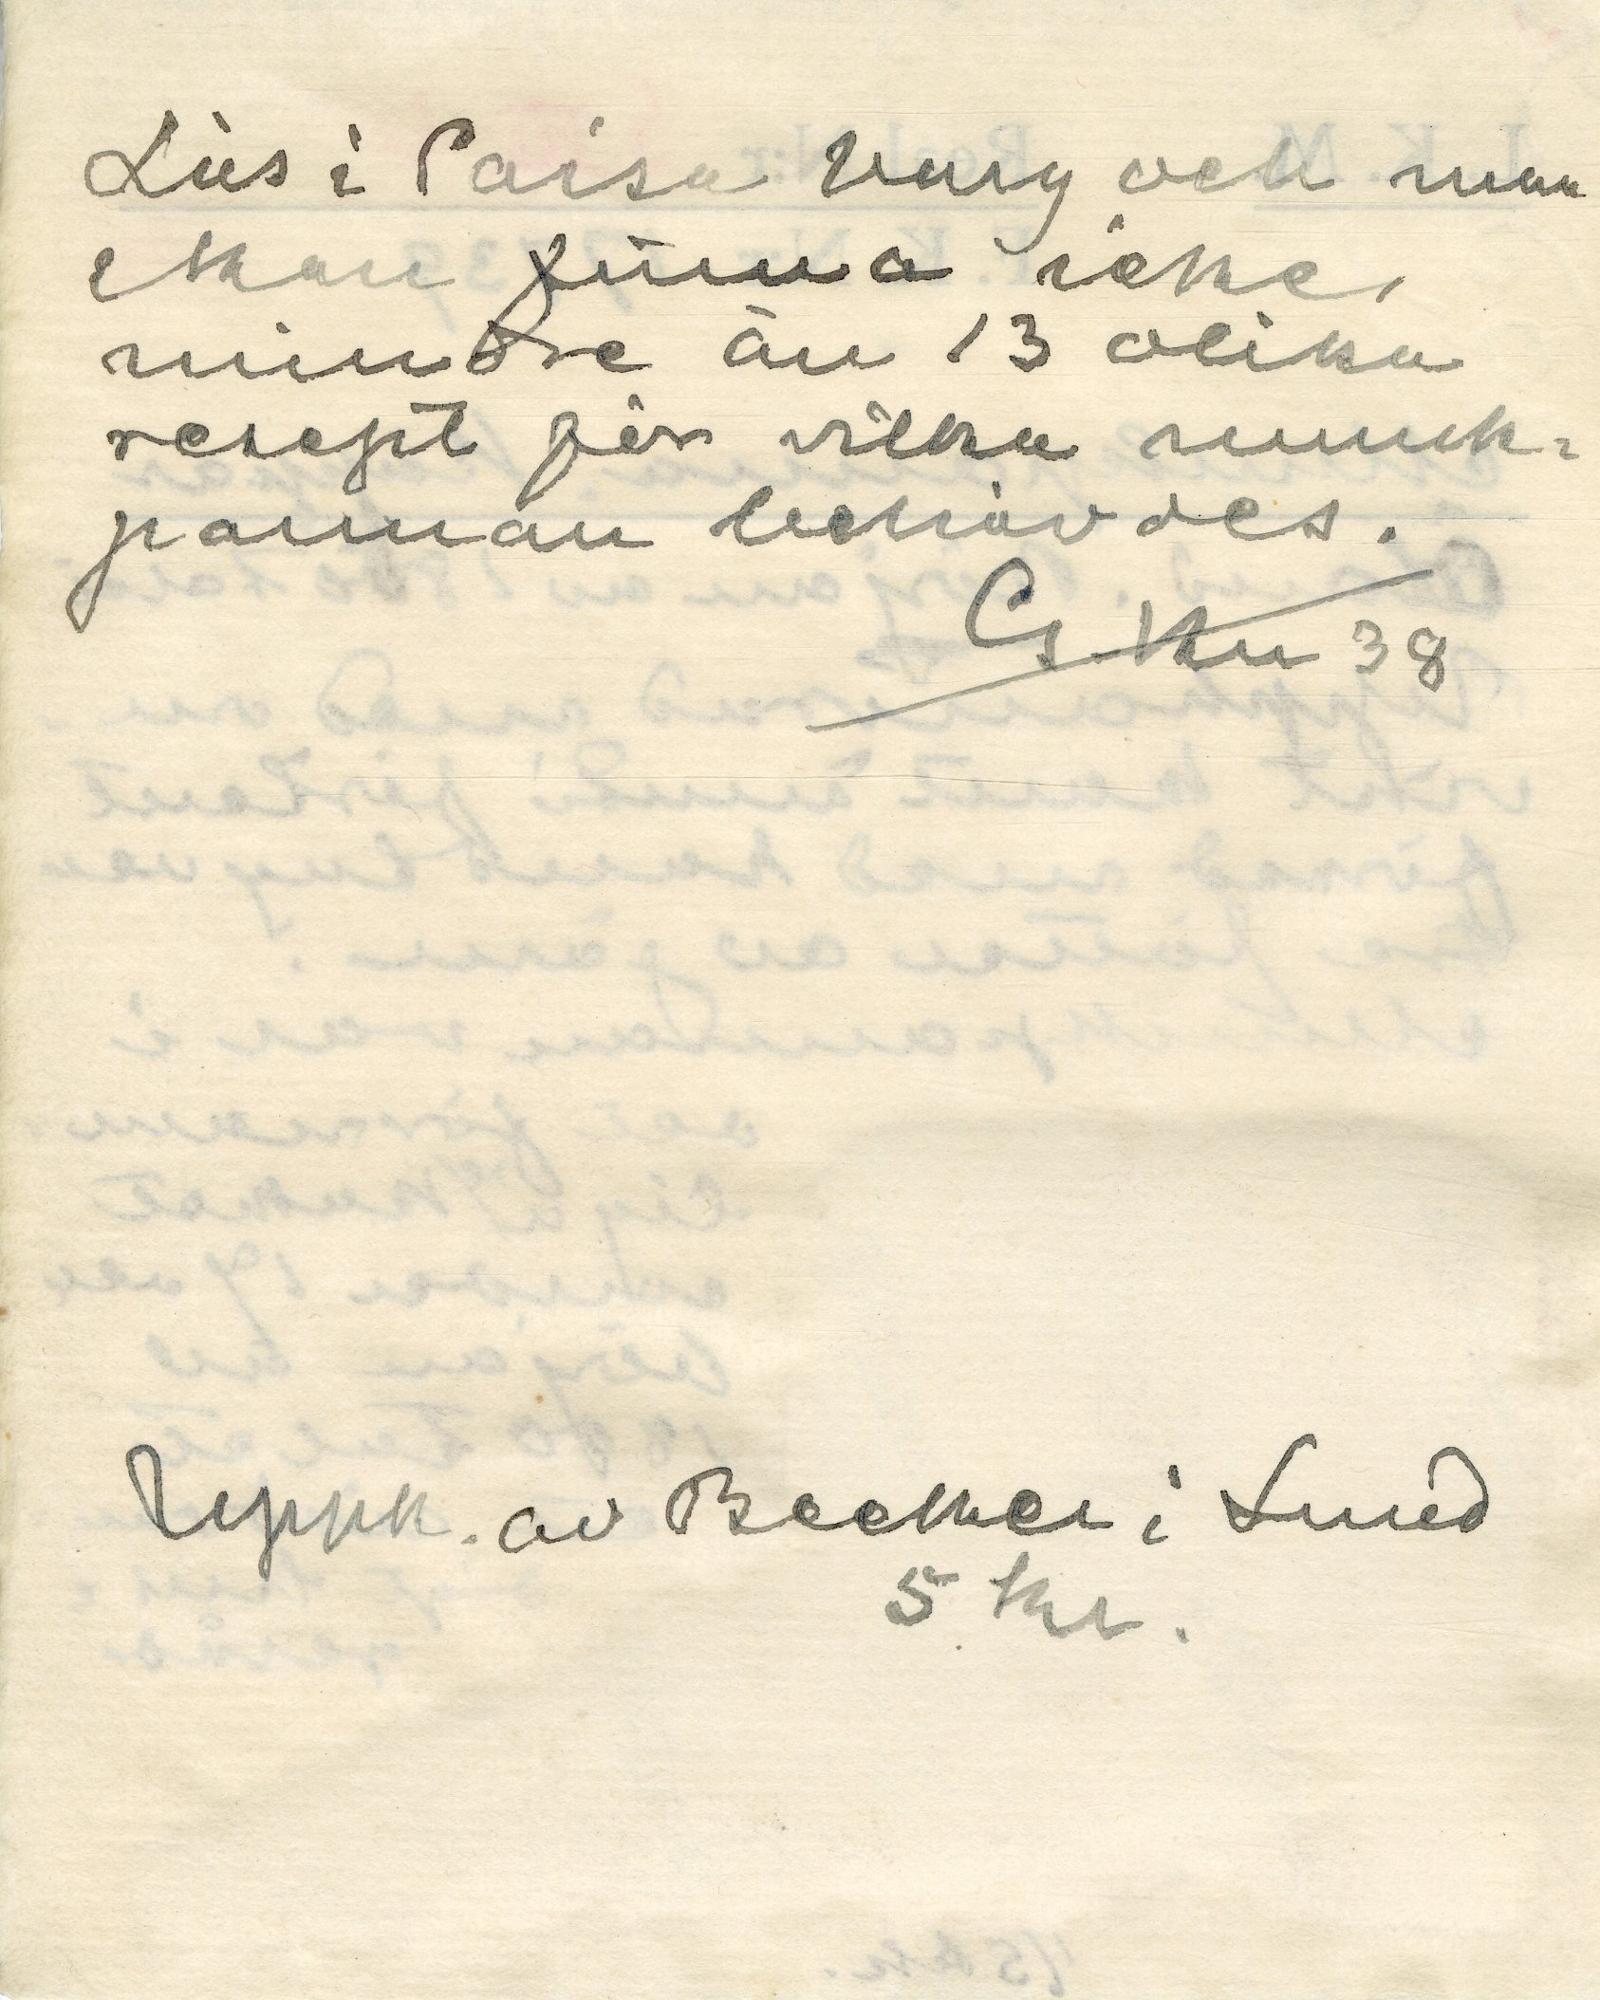 Läs i Caisa Warg och man
skall finna icke
mindre än 13 olika
resept för vilka munk-
pannan behövdes.
38
Uppk. av Becker i Lund
5 kr.